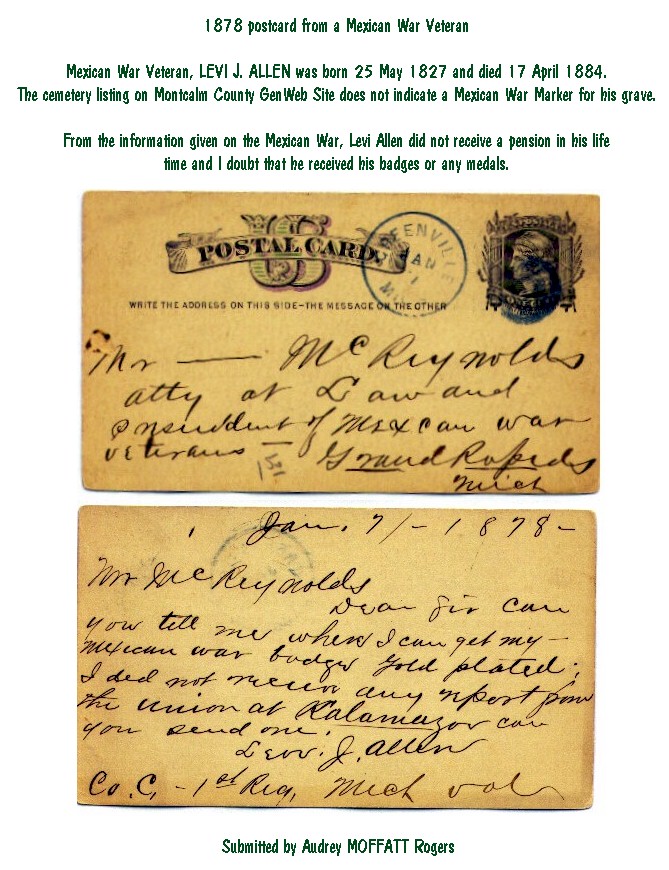 1878 postcard from a Mexican War Veteran
Mexican War Veteran, LEVI J. ALLEN was born 25 May 1827 and died 17 April 1884.
The cemetery listing on Montcalm County GenWeb Site does not indicate a Mexican War Marker for his grave.
From the information given on the Mexican War, Levi Allen did not receive a pension in his life
time and I doubt that he received his badges or any medals.
US
POSTAL CARD.
GREENVILLE
JAN
WRITE THE ADDRESS ON THIS SIDE-THE MESSAGE ON THE OTHER
Mr — McReynolds
atty at Law and
president of Mexican war
veterans — Grand Rapids
Mich
Jan. 7/- 1878-
Mr McReynolds
Dear Sir can
you tell me where I can get my
Mexican war badge Gold plated;
I did not receive any report from
the Union at Kalamazoo can
you send one.
Levi. J. Allen
Co. C, - 1st Reg, Mich vol
Submitted by Audrey MOFFATT Rogers